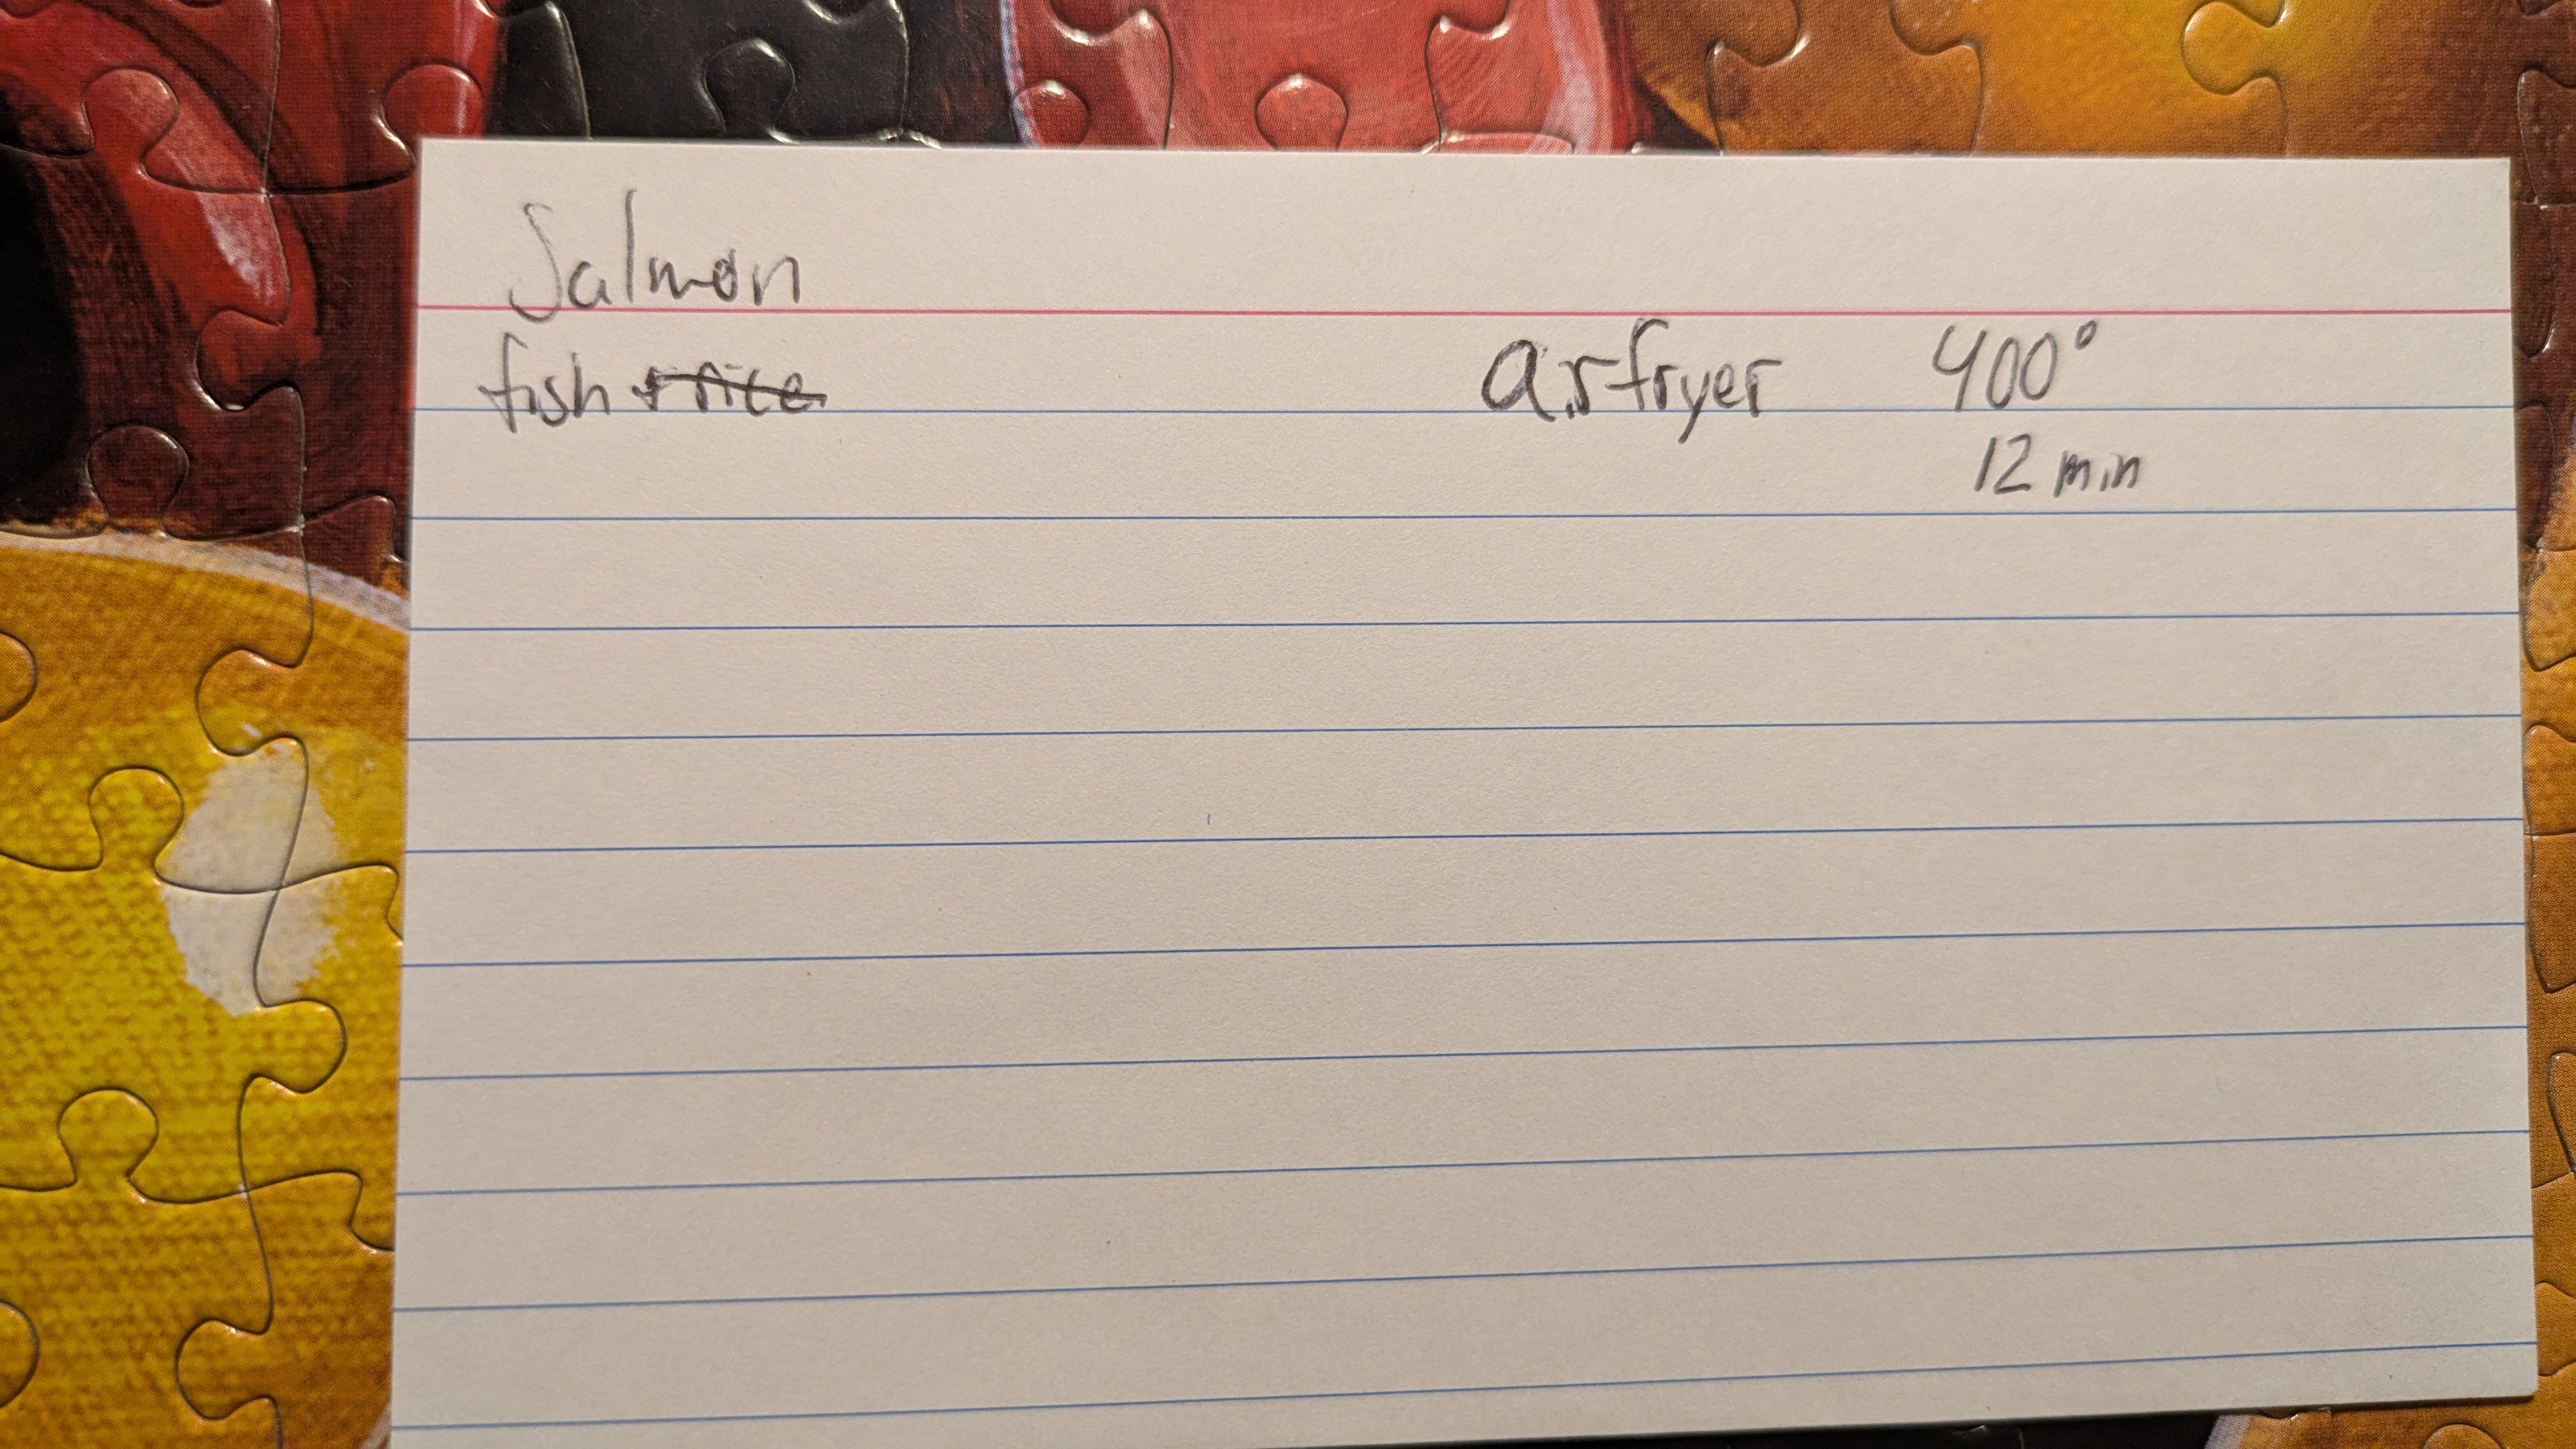 Salmon
fish + rice airfryer 400°
12 min